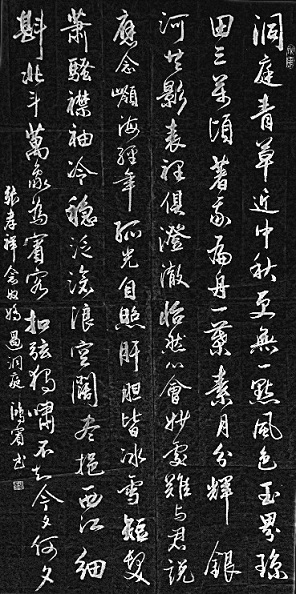 洞庭青草近中秋更無一點風色玉界瓊
田三萬頃著我扁舟一葉素月分輝銀
河共影表裡俱澄澈怡然心會妙處難與君說
應念嶺海經年孤光自照肝胆皆冰雪短髮
蕭騷襟袖冷穩泛滄浪空闊盡挹西江細
斟北斗萬象為賓客扣弦獨嘯不知今夕何夕
張孝祥念奴嬌過洞庭 鴻賓書